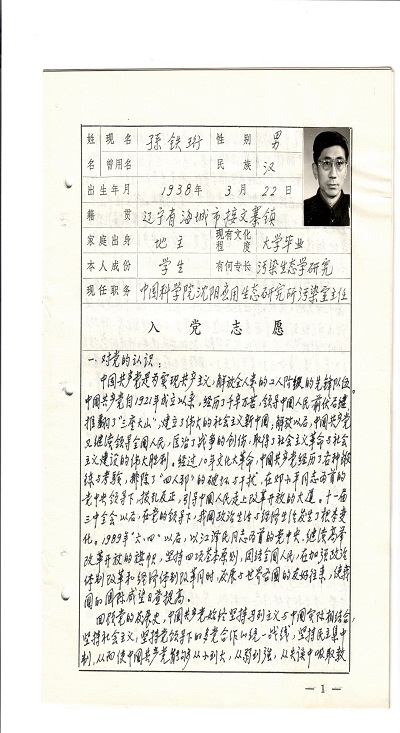 姓 现名 孙铁珩 性别 男
名 曾用名 民族 汉
出生年月 1938年 3月 22日
籍贯 辽宁省海城市接文寨镇
家庭出身 地主 现有文化程度 大学毕业
本人成份 学生 有何专长 污染生态学研究
现任职务 中国科学院沈阳应用生态研究所污染室主任
入党志愿
一.对党的认识:
中国共产党是为实现共产主义,解放全人类的工人阶级的先锋队伍
中国共产党自1921年成立以来,经历了千辛万苦,领导中国人民前仆后继
推翻了“三座大山”,建立了伟大的社会主义新中国,解放以后,中国共产党
又继续领导全国人民,医治了战争的创伤,取得了社会主义革命与社会
主义建设的伟大胜利.经过10年文化大革命,中国共产党经历了各种锻
炼与考验,排除了“四人邦”的破坏与干扰,在邓小平同志为首的
党中央领导下,拨乱反正,引导中国人民走上改革开放的大道。十一届
三中全会以后,在党的领导下,我国政治生活与经济生活发生了根本变
化。1989年“六.四”以后,以江泽民同志为首的党中央,继续高举
改革开放的旗帜,坚持四项基本原则,团结全国人民,在加强政治
体制改革和经济体制改革同时,发展与世界各国的友好往来,使我
国的国际威望日益提高。
回顾党的发展史,中国共产党始终坚持马列主义与中国实际相结合,
坚持社会主义,坚持党领导下的多党合作的统一战线,坚持民主集中
制,从而使中国共产党能够从小到大,从弱到强,从失误中吸取教
— 1 —